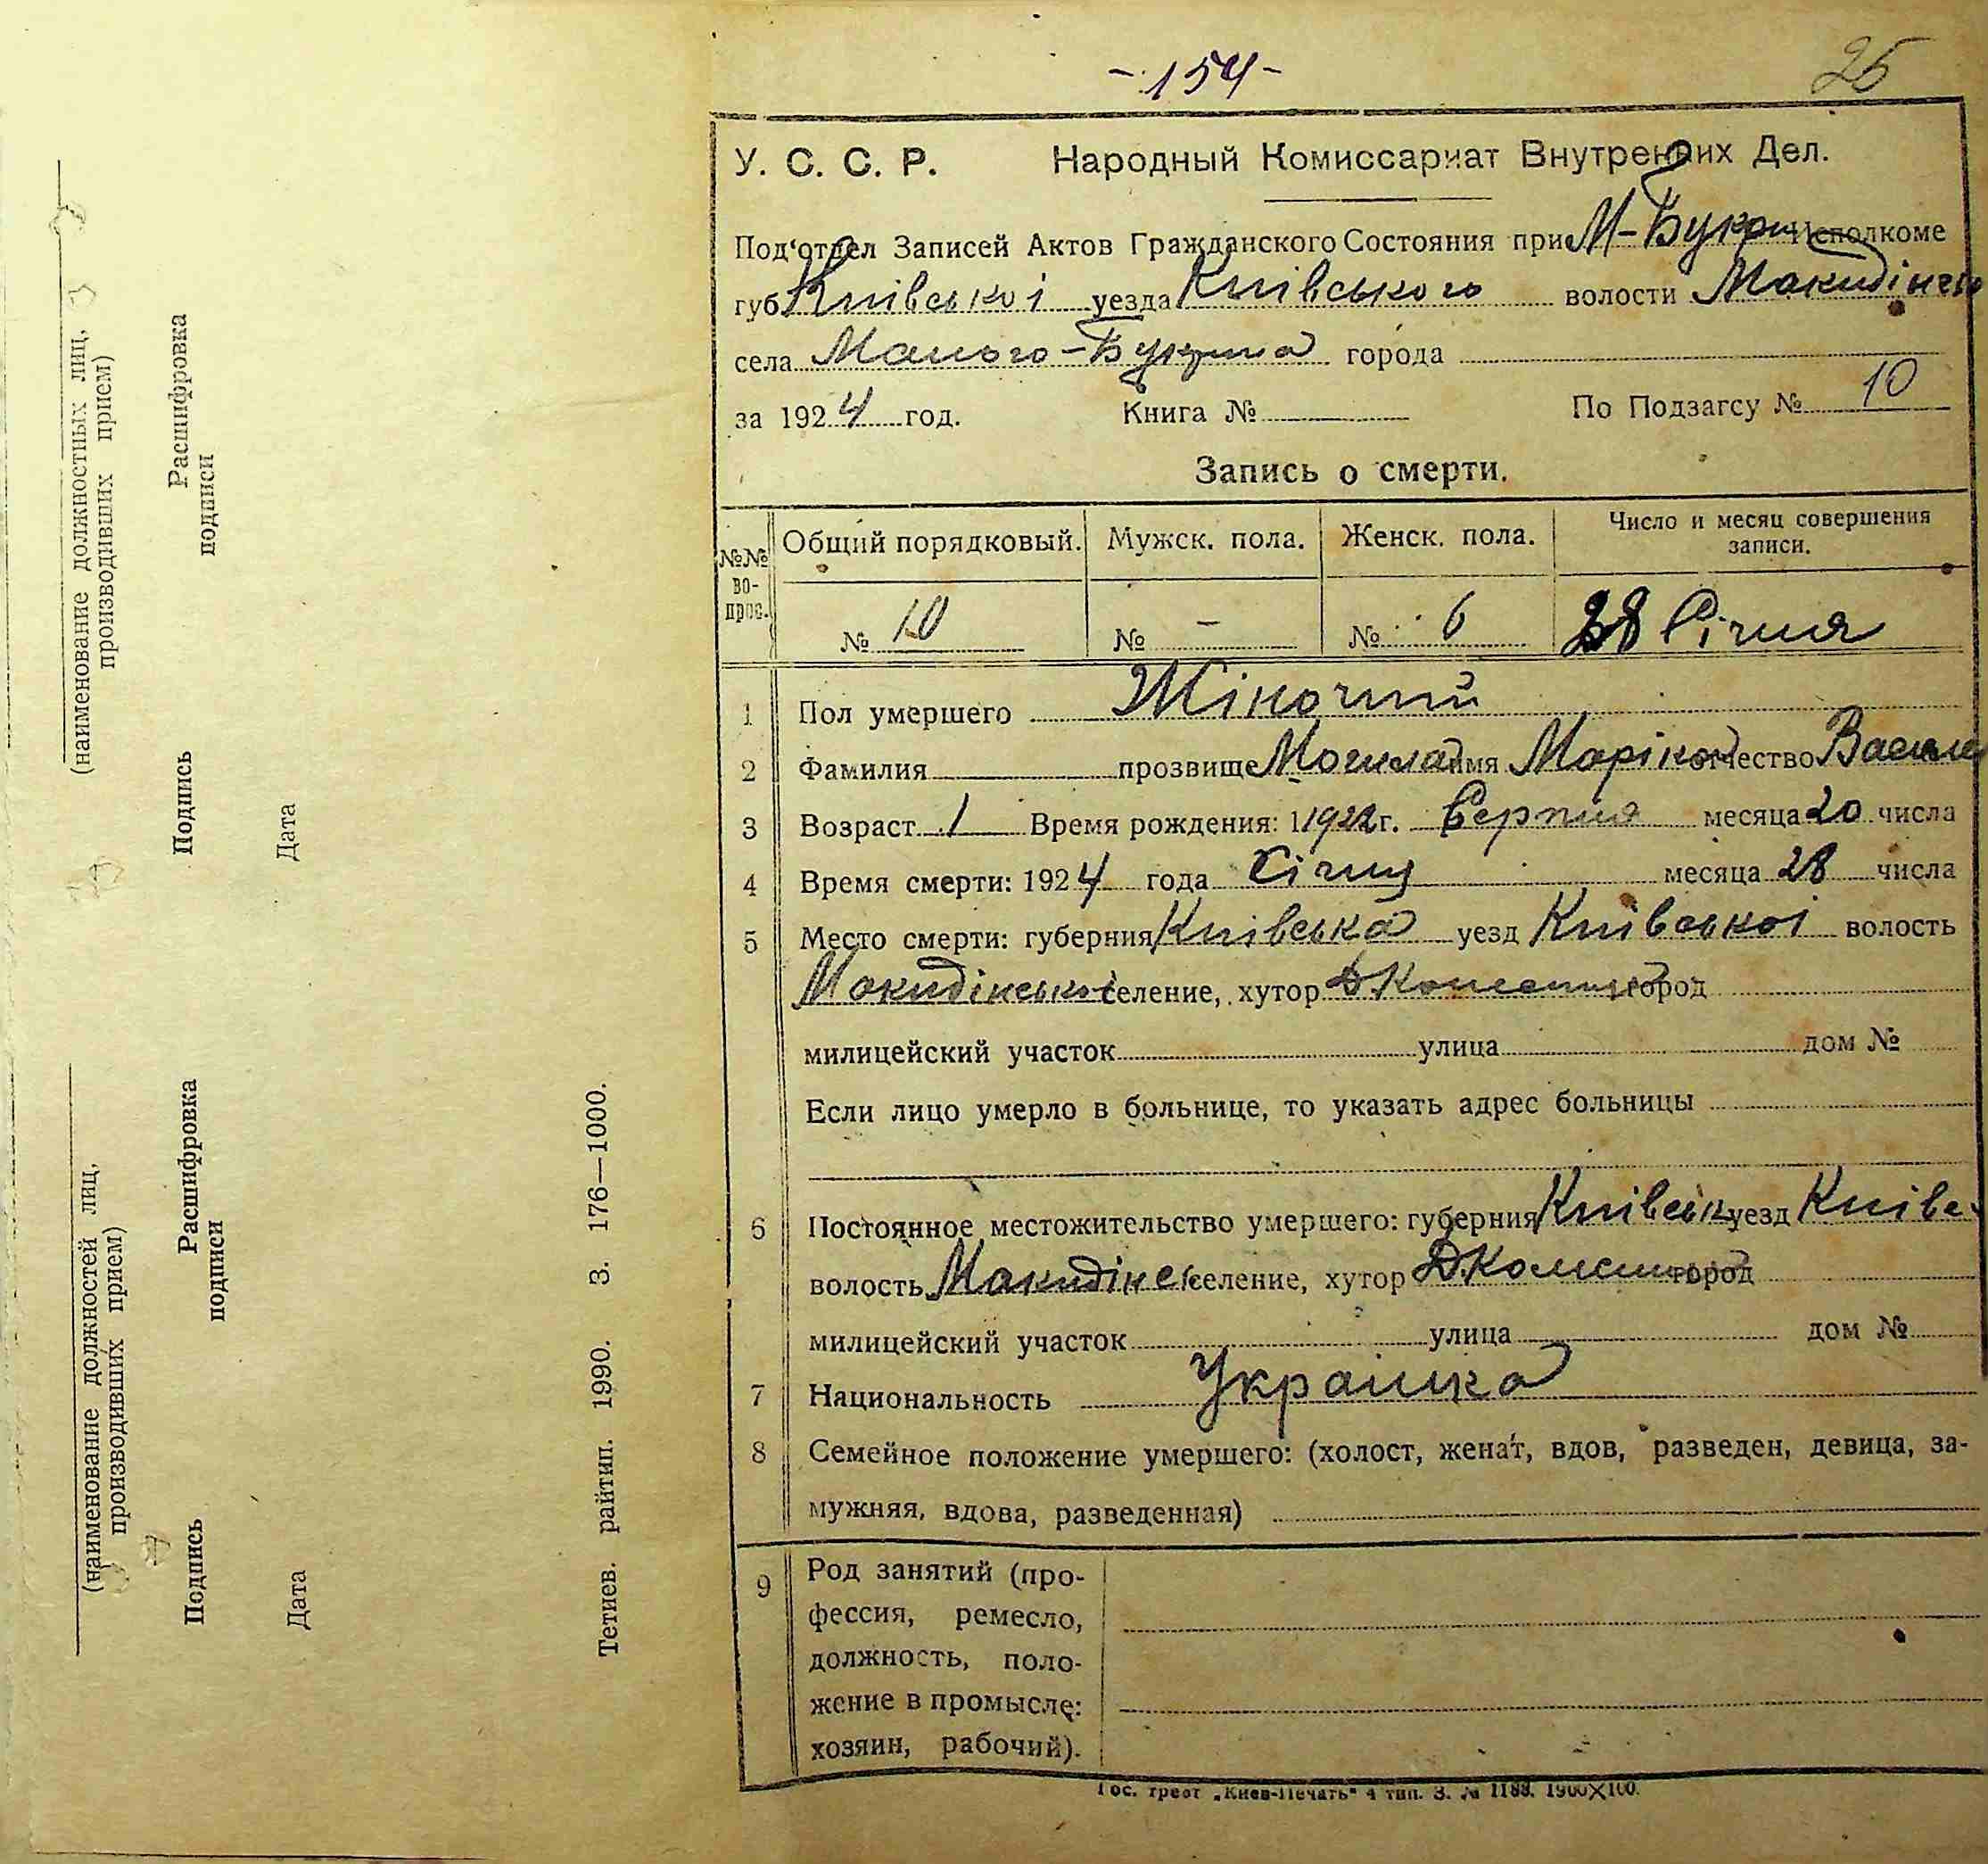 -154-
25
У. С. С. Р. Народный Комиссариат Внутренних Дел.
Под'отдел Записей Актов Гражданского Состояния при М-Букрин Исполкоме
губ Київської уезда Київського волости Макидінсь
села Малого-Букрина города
за 1924 год. Книга № По Подзагсу № 10
Запись о смерти.
№№ во-прос. Общий порядковый. Мужск. пола. Женск. пола. Число и месяц совершения записи.
№ 10 № - № 6 28 Січня
1 Пол умершего Жіночий
2 Фамилия прозвище Могила имя Маріка отчество Васил
3 Возраст 1 Время рождения: 1 1922 г. Серпня месяца 20 числа
4 Время смерти: 1924 года Січня месяца 28 числа
5 Место смерти: губерния Київська уезд Київської волость
Макидінської селение, хутор город
милицейский участок улица дом №
Если лицо умерло в больнице, то указать адрес больницы
6 Постоянное местожительство умершего: губерния Київськ уезд Київс
волость Макидінс селение, хутор город
милицейский участок улица дом №
7 Национальность Українка
8 Семейное положение умершего: (холост, женат, вдов, разведен, девица, за-
мужняя, вдова, разведенная)
9 Род занятий (про-
фессия, ремесло,
должность, поло-
жение в промысле:
хозяин, рабочий).
Гос. трест „Киев-Печать" 4 тип. З. № 1188. 1900X100.
(наименование должностных лиц,
производивших прием)
Расшифровка
подписи
Подпись
Дата
(наименование должностей лиц,
производивших прием)
Расшифровка
подписи
Подпись
Дата
Тетиев. райтип. 1990. З. 176—1000.